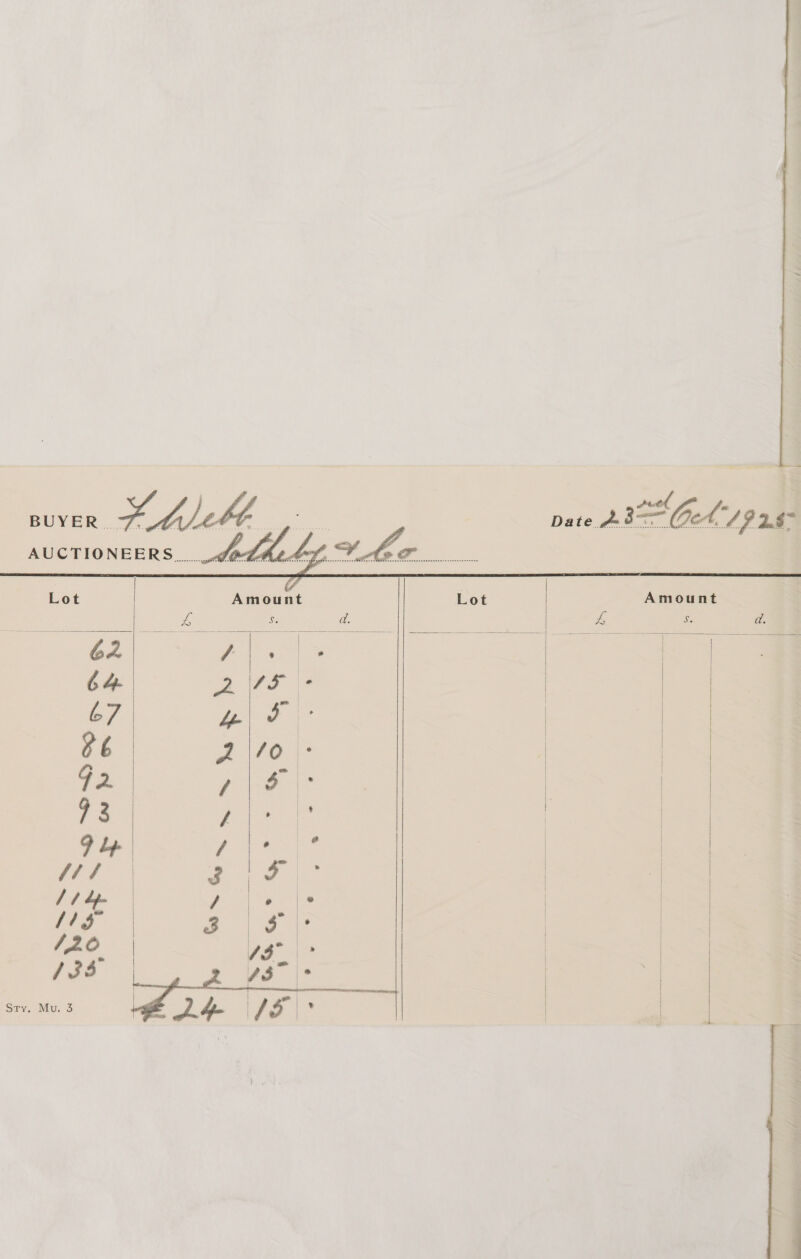 BUYER F. Webb Date 23rd Oct. 1925
AUCTIONEERS Sotheby & Co
Lot Amount Lot Amount
£ s. d. £ s. d.
62 1 . .
64 2 15 .
67 4 5 .
86 2 10 .
92 1 5 .
93 1 . .
94 1 . .
111 3 5 .
114 1 . .
115 3 5 .
120 15 .
135 2 15 .
STY. MU. 3 £ 24 15 .